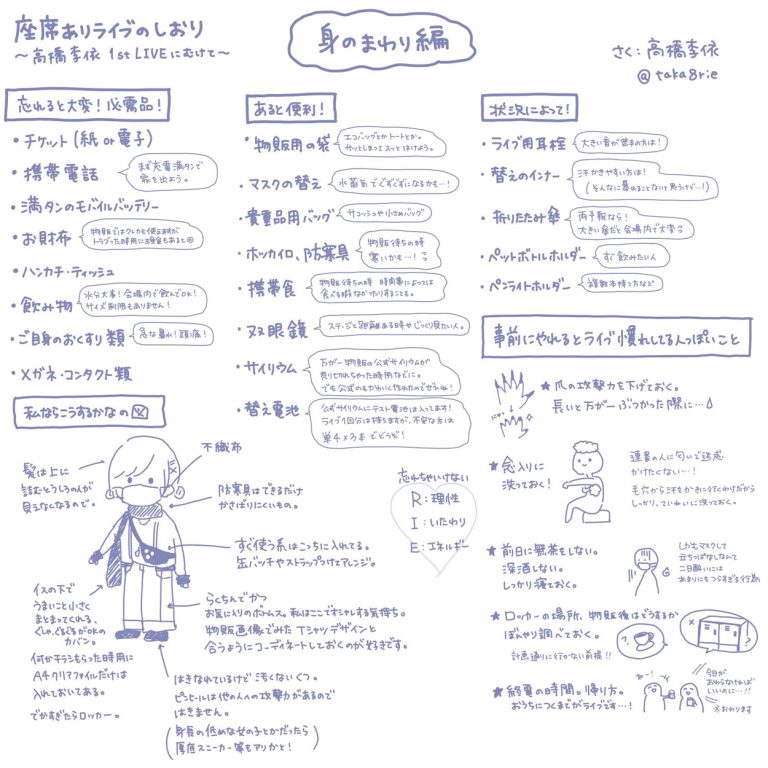 座席ありライブのしおり
〜高橋李依 1st LIVEにむけて〜
身のまわり編
さく:高橋李依
@taka8rie
忘れると大変!必需品!
・チケット(紙or電子)
・携帯電話
まず充電満タンで
家を出よう。
・満タンのモバイルバッテリー
・お財布
物販ではクレカも使えますが
トラブった時用に現金もあると◎
・ハンカチ・ティッシュ
・飲み物
水分大事!会場内で飲んでOK!
サイズ制限もありません!
・ご自身のおくすり類
急な暑れ!頭痛!
・メガネ・コンタクト類
あると便利!
・物販用の袋
エコバッグとかトートとか。
サッとしまってスッとはけよう。
・マスクの替え
水蒸気でぐずぐずになるかも…!
・貴重品用バッグ
サコッシュや小さめバッグ
・ホッカイロ、防寒具
物販待ちの時
寒いかも…!
・携帯食
物販待ちの時 時間帯によっては
食べる暇なかったりすることも。
・双眼鏡
ステージと距離ある時やじっくり見たい人。
・サイリウム
万が一物販の公式サイリウムが
売り切れちゃった時用などに。
でも公式のもかわいく作れたのでぜひね!
・替え電池
公式サイリウムにテスト電池は入ってます!
ライブ1回分は持ちますが、不安な方は
単4×3本でどうぞ!
状況によって!
・ライブ用耳栓
大きい音が苦手の方は!
・替えのインナー
汗かきやすい方は!
(そんなに暴れることないと思うけど…!)
・折りたたみ傘
雨予報なら!
大きい傘だと会場内で大変
・ペットボトルホルダー
すぐ飲みたい人
・ペンライトホルダー
複数本持つ方など
事前にやれるとライブ慣れしてる人っぽいこと
★爪の攻撃力を下げておく。
長いと万が一ぶつかった際に…
★念入りに
洗っておく!
連番の人に匂いで迷惑
かけたくない…!
毛穴から汗をかきに行くわけだから
しっかり、ていねいに洗っておく。
★前日に無茶をしない。
深酒しない。
しっかり寝ておく。
しかもマスクして
立ちっぱなしなんて
二日酔いには
あまりにもつらすぎる行為
★ロッカーの場所、物販後はどうするか
ぼんやり調べておく。
計画通りに行かない前提!!
?
?
★終電の時間。帰り方。
おうちにつくまでがライブです…!
今日が
おわらなければ
いいのに…!!
おわります
私ならこうするかなの図
髪は上に
詰むとうしろの人が
見えなくなるので。
不織布
防寒具はできるだけ
かさばりにくいもの。
すぐ使う系はこっちに入れてる。
缶バッチやストラップつけてアレンジ。
イスの下で
うまいこと小さく
まとまってくれる、
ぐしゃぐるぐるがOKの
カバン。
何かチラシもらった時用に
A4クリアファイルだけは
入れておいてある。
でかすぎたらロッカー。
らくちんでかつ
お気に入りのボトムス。私はここでオシャレする気持ち。
物販画像でみたTシャツデザインと
合うようにコーディネートしておくのが好きです。
はきなれているけど汚くないくつ。
ピンヒールは他の人への攻撃力があるので
はきません。
(身長の低めな女の子とかだったら
厚底スニーカー等もアリかと!)
忘れちゃいけない
R:理性
I:いたわり
E:エネルギー